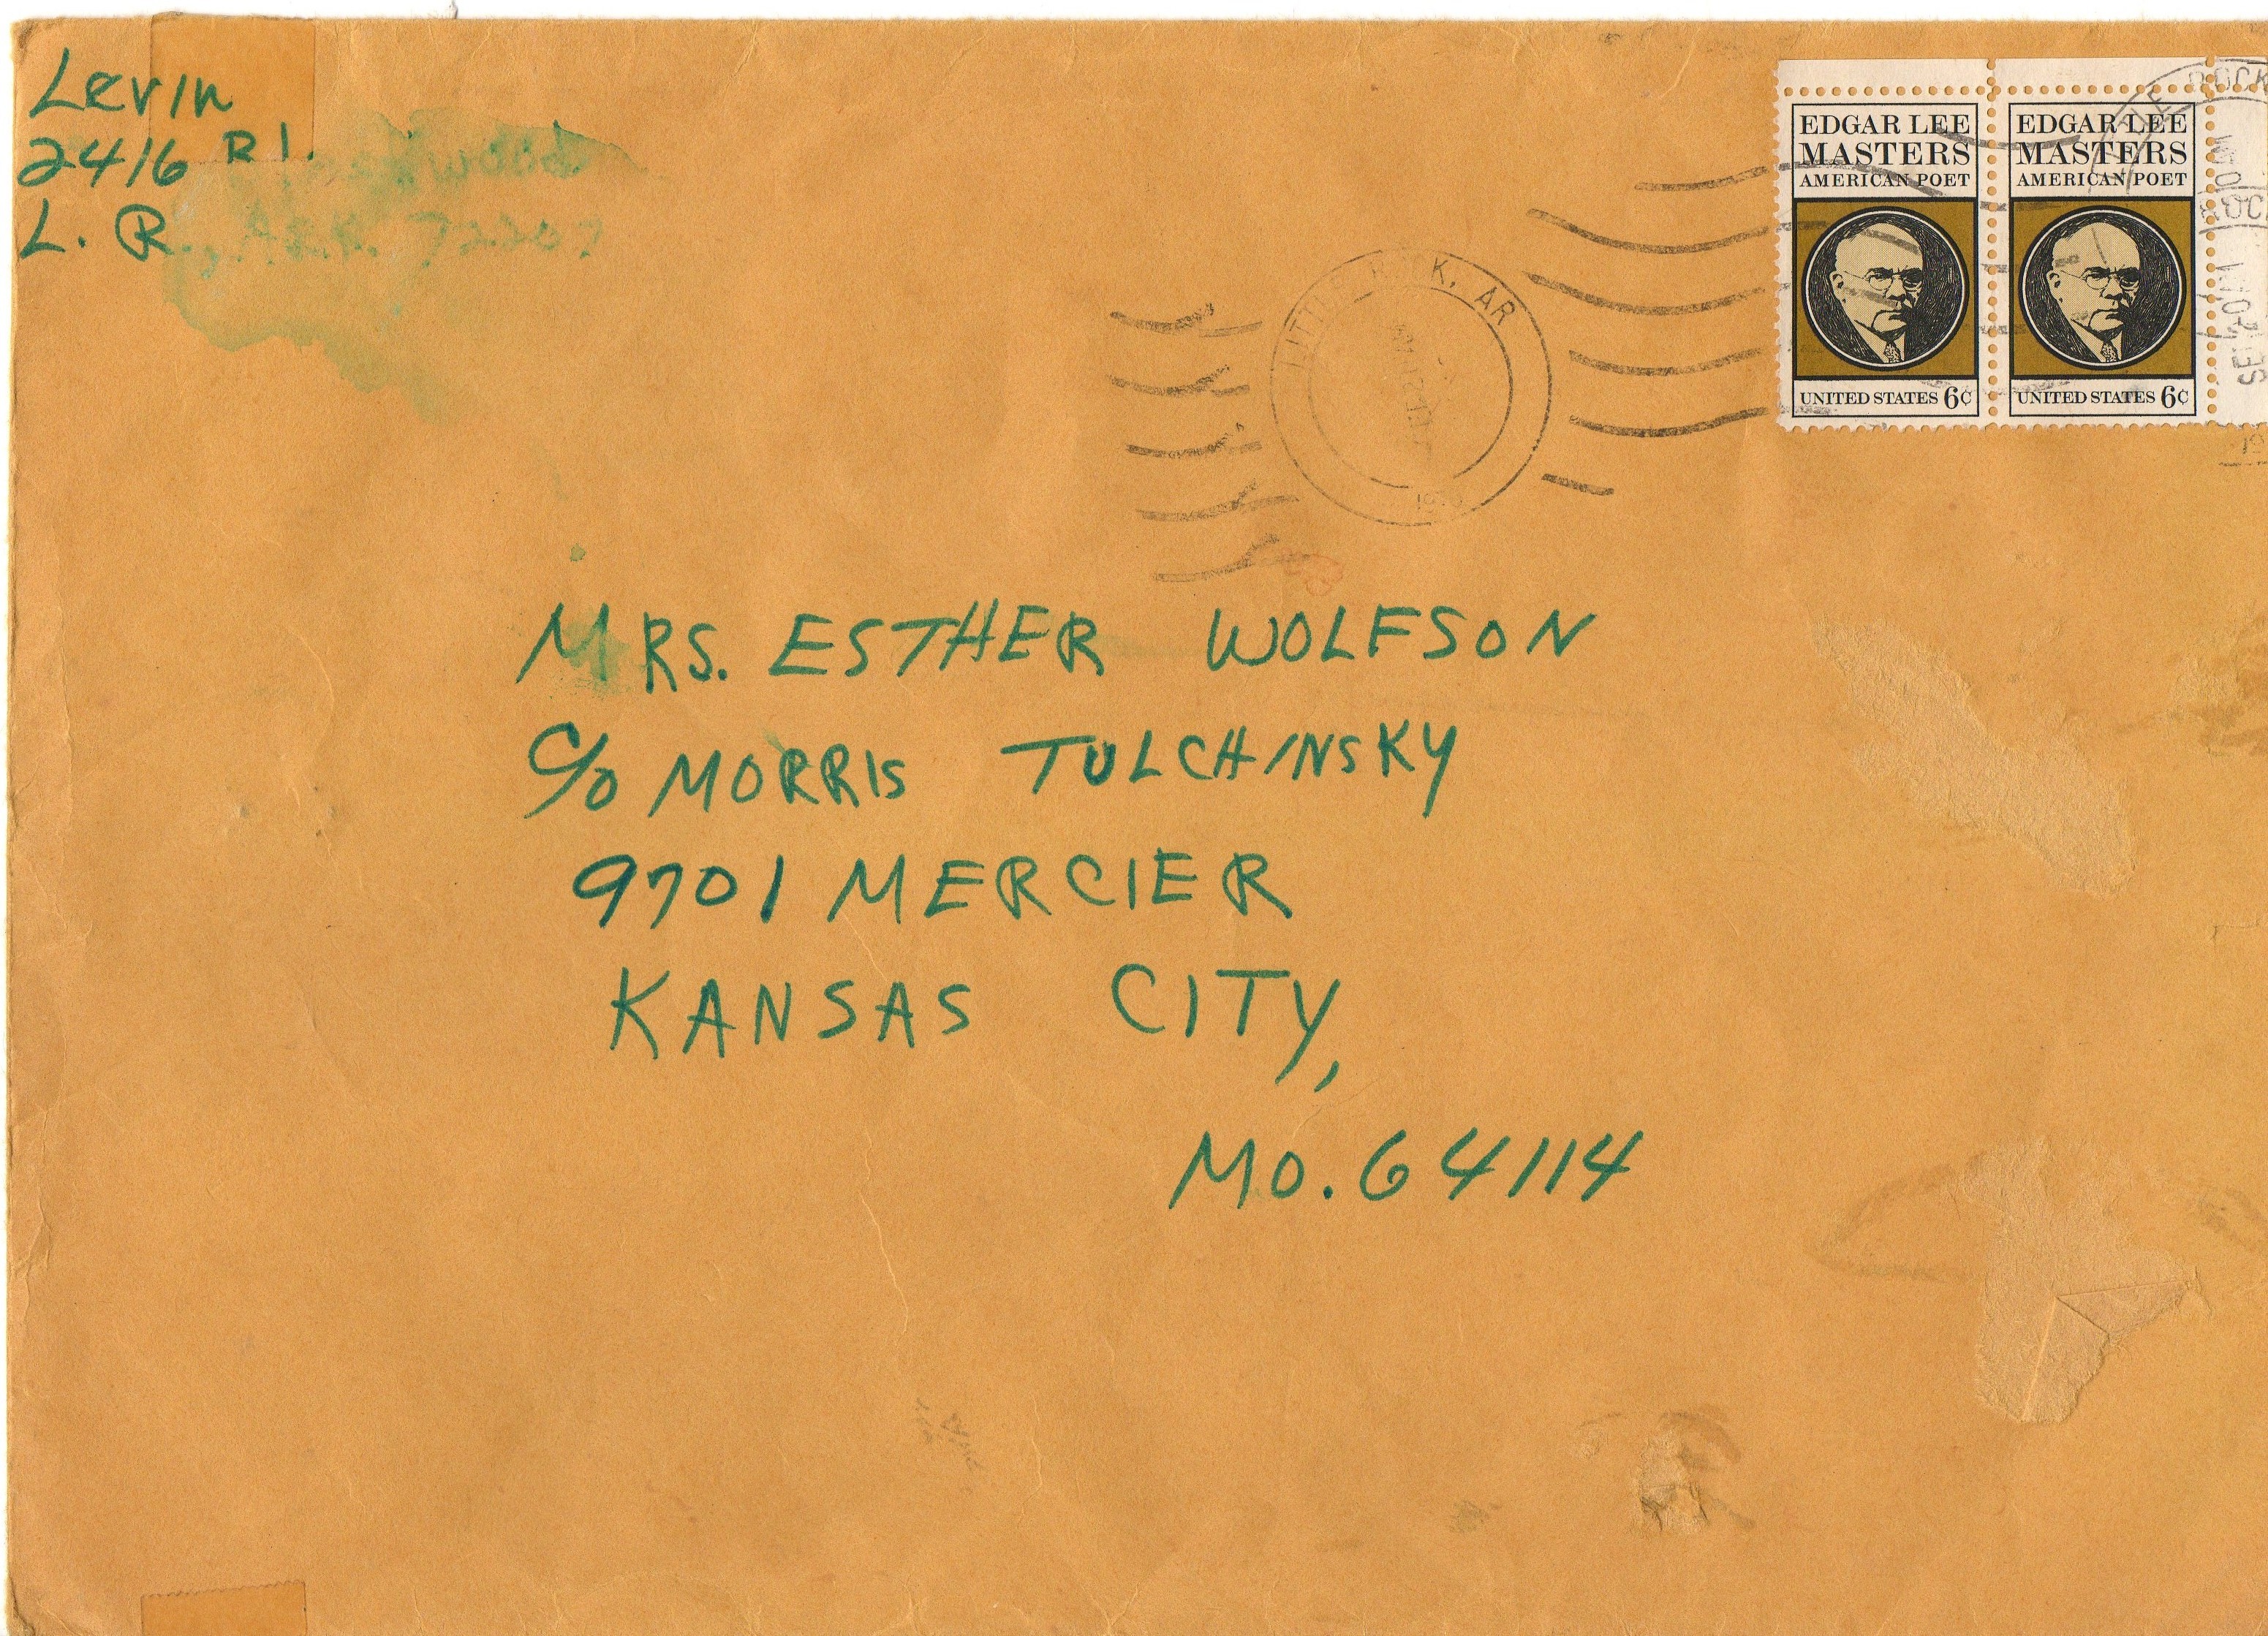 Levin
2416
L. R., ARK. 72207
EDGAR LEE
MASTERS
AMERICAN POET
UNITED STATES 6¢
EDGAR LEE
MASTERS
AMERICAN POET
UNITED STATES 6¢
LITTLE ROCK, AR
MRS. ESTHER WOLFSON
C/O MORRIS TULCHINSKY
9701 MERCIER
KANSAS CITY,
MO. 64114